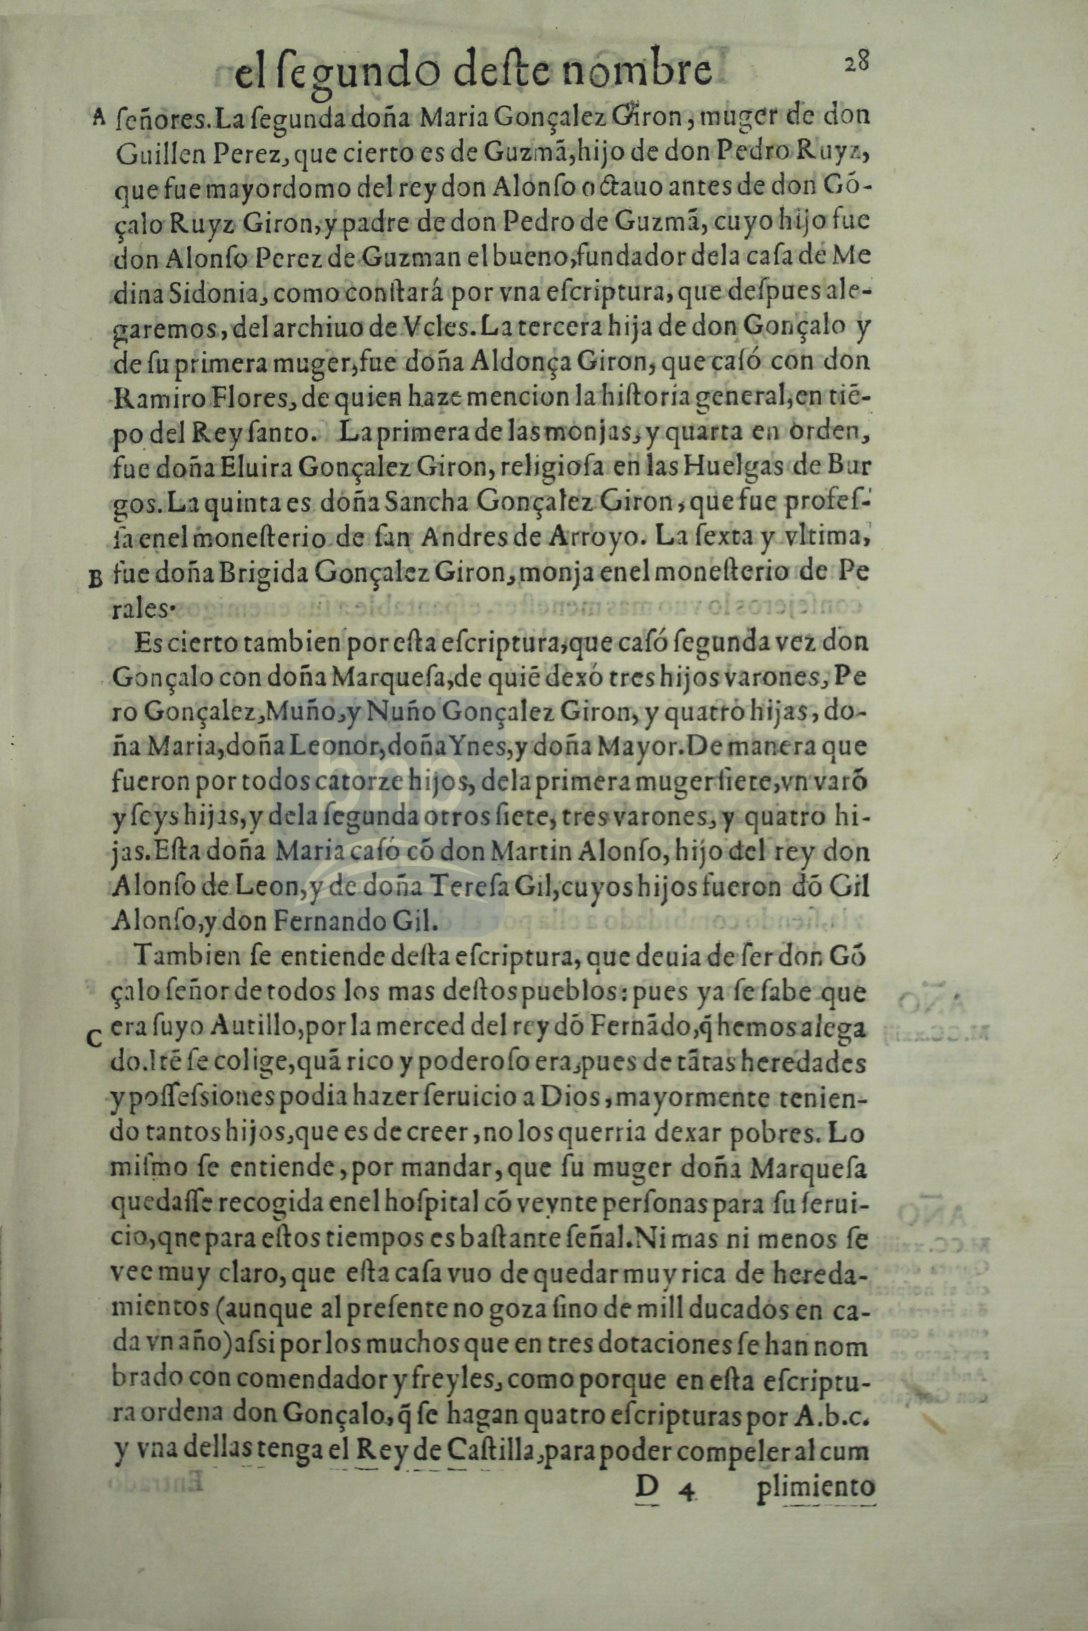 el ſegundo deſte nombre 28
A ſeñores. La ſegunda doña Maria Gonçalez Giron, muger de don
Guillen Perez, que cierto es de Guzmã, hijo de don Pedro Ruyz,
que fue mayordomo del rey don Alonſo octauo antes de don Gõ-
çalo Ruyz Giron, y padre de don Pedro de Guzmã, cuyo hijo fue
don Alonſo Perez de Guzman el bueno, fundador dela caſa de Me
dina Sidonia, como conſtará por vna eſcriptura, que deſpues ale-
garemos, del archiuo de Vcles. La tercera hija de don Gonçalo y
de ſu primera muger, fue doña Aldonça Giron, que caſó con don
Ramiro Flores, de quien haze mencion la hiſtoria general, en tiẽ-
po del Rey ſanto. La primera de las monjas, y quarta en orden,
fue doña Eluira Gonçalez Giron, religioſa en las Huelgas de Bur
gos. La quinta es doña Sancha Gonçalez Giron, que fue profeſ-
ſa enel moneſterio de ſan Andres de Arroyo. La ſexta y vltima,
B fue doña Brigida Gonçalez Giron, monja enel moneſterio de Pe
rales.
Es cierto tambien por eſta eſcriptura, que caſó ſegunda vez don
Gonçalo con doña Marqueſa, de quiẽ dexó tres hijos varones, Pe
ro Gonçalez, Muño, y Nuño Gonçalez Giron, y quatro hijas, do-
ña Maria, doña Leonor, doña Ynes, y doña Mayor. De manera que
fueron por todos catorze hijos, dela primera muger ſiete, vn varõ
y ſeys hijas, y dela ſegunda otros ſiete, tres varones, y quatro hi-
jas. Eſta doña Maria caſó cõ don Martin Alonſo, hijo del rey don
Alonſo de Leon, y de doña Tereſa Gil, cuyos hijos fueron dõ Gil
Alonſo, y don Fernando Gil.
Tambien ſe entiende deſta eſcriptura, que deuia de ſer don Gõ
çalo ſeñor de todos los mas deſtos pueblos: pues ya ſe ſabe que
C era ſuyo Autillo, por la merced del rey dõ Fernãdo, q̃ hemos alega
do. Itẽ ſe colige, quã rico y poderoſo era, pues de tãtas heredades
y poſſeſsiones podia hazer ſeruicio a Dios, mayormente tenien-
do tantos hijos, que es de creer, no los querria dexar pobres. Lo
miſmo ſe entiende, por mandar, que ſu muger doña Marqueſa
quedaſſe recogida enel hoſpital cõ veynte perſonas para ſu ſerui-
cio, qne para eſtos tiempos es baſtante ſeñal. Ni mas ni menos ſe
vee muy claro, que eſta caſa vuo de quedar muy rica de hereda-
mientos (aunque al preſente no goza ſino de mill ducados en ca-
da vn año) aſsi por los muchos que en tres dotaciones ſe han nom
brado con comendador y freyles, como porque en eſta eſcriptu-
ra ordena don Gonçalo, q̃ ſe hagan quatro eſcripturas por A.b.c.
y vna dellas tenga el Rey de Caſtilla, para poder compeler al cum
D 4 plimiento